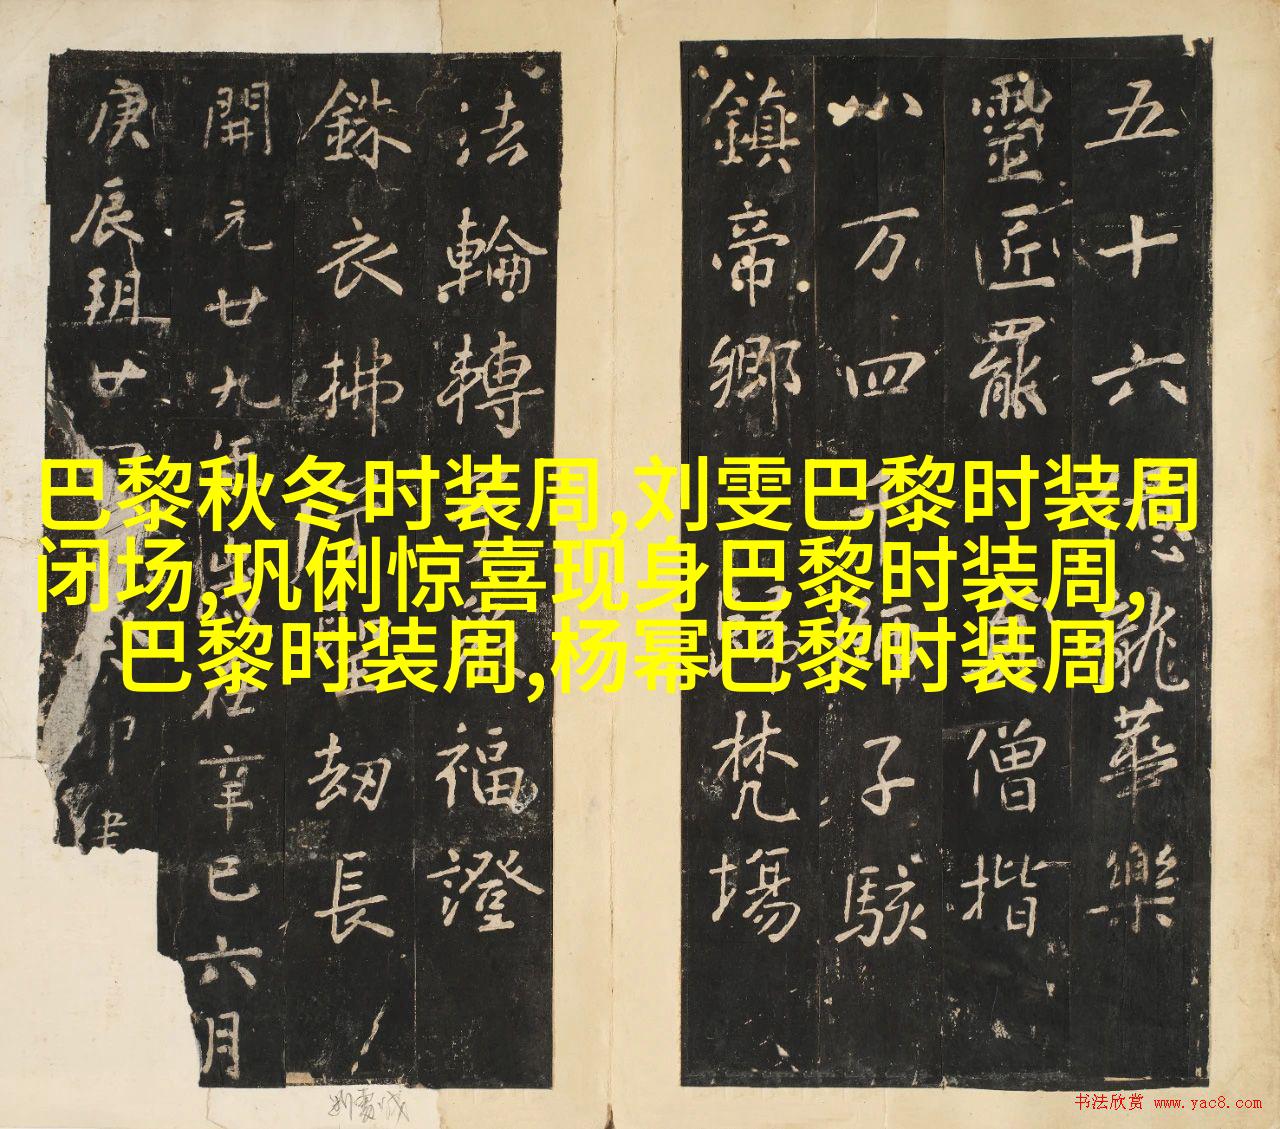 五十六億龍華樂
靈匠罷 僧揩
八万四千 子駭
鎮帝鄉 梵場
法輪轉 福證
銖衣拂 聖劫長
開元廿九年 在辛巳六月
庚辰朔廿 癸卯建
巴黎秋冬时装周,刘雯巴黎时装周
闭场,巩俐惊喜现身巴黎时装周,
巴黎时装周,杨幂巴黎时装周
书法欣赏 www.yac8.com